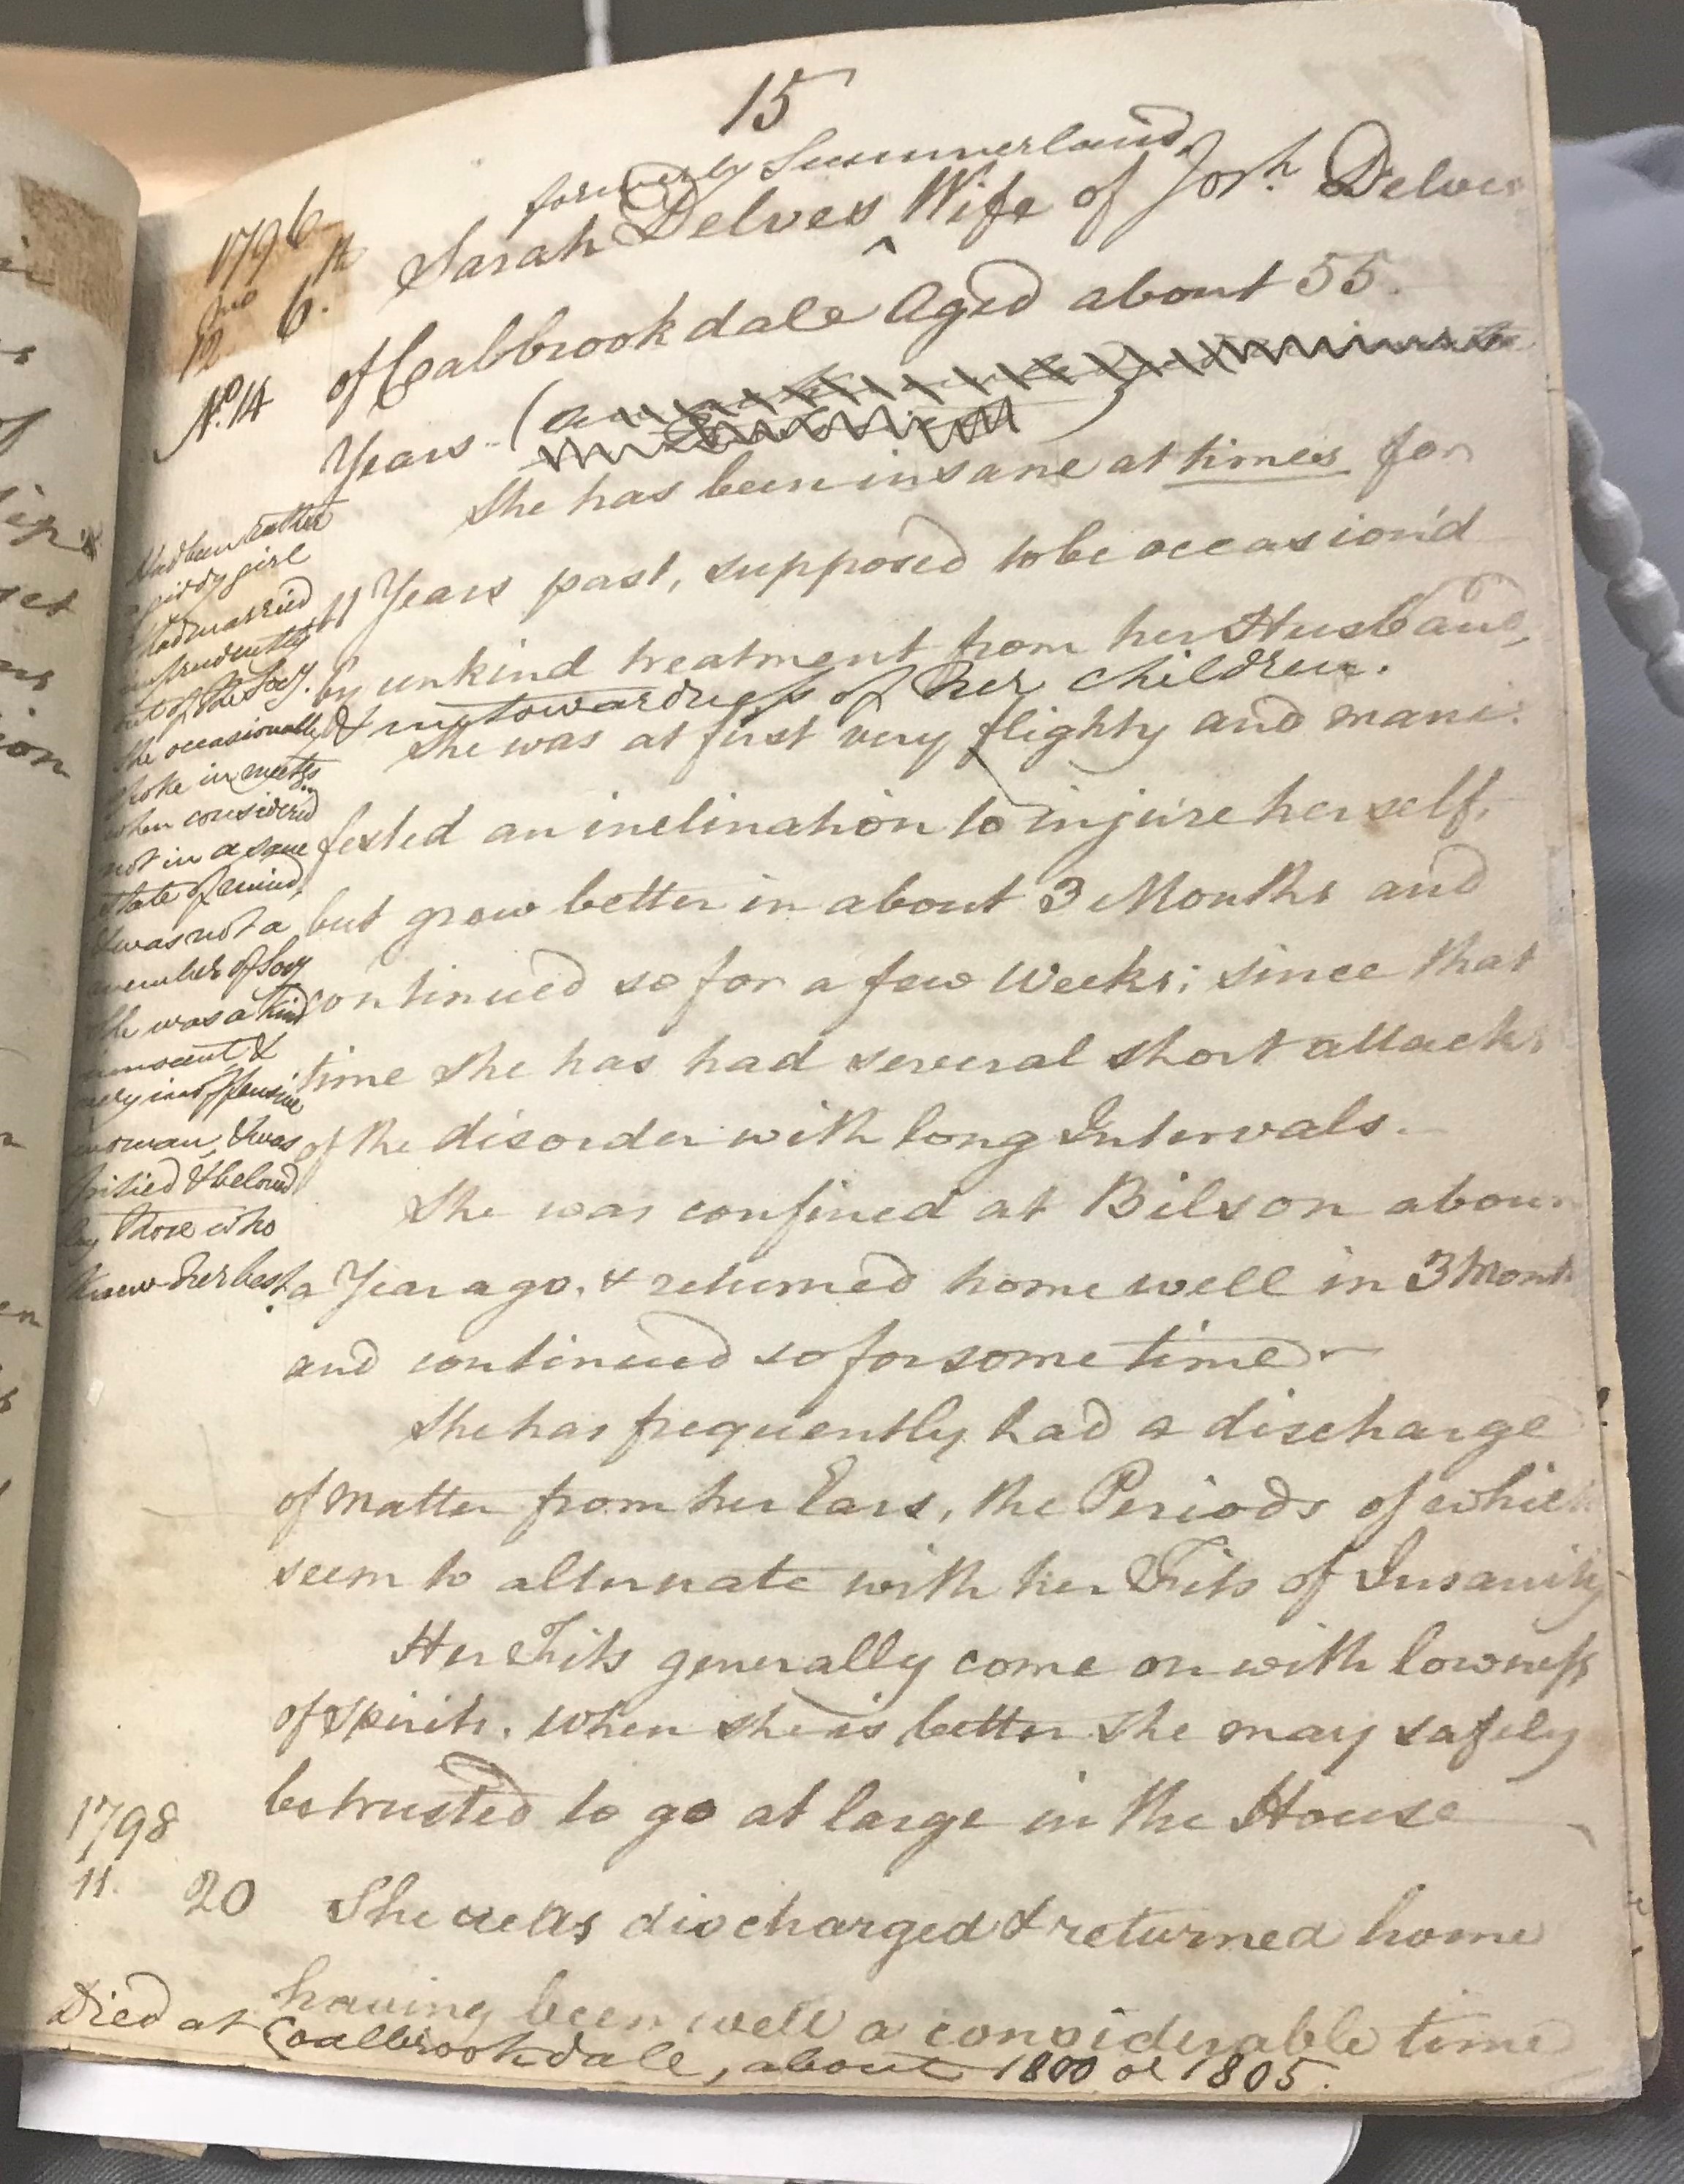 15
formerly Summerland
1796
Sarah Delves ^ Wife of Josh. Delves
mo 6.th
12
of Coalbrookdale Aged about 55.
No. 14
Years (
She has been insane at times for
11 Years past, supposed to be occasion'd
by unkind treatment from her Husband,
& untowardness of her children.
She was at first very flighty and mani:
fested an inclination to injure herself,
but grew better in about 3 Months and
continued so for a few Weeks; since that
time she has had several short attacks
of the disorder with long Intervals.
She was confined at Bilson about
a Year ago, & returned home well in 3 Month
and continued so for some time
She has frequently had a discharge
of matter from her Ears, the Periods of which
seem to alternate with her Fits of Insanity
Her Fits generally come on with lowness
of spirits. When she is better she may safely
be trusted to go at large in the House
Had been rather
a giddy girl
Had married
imprudently
out of the Socy.
She occasionally
spoke in meetgs
when considered
not in a sane
state of mind,
& was not a
member of Socy
She was a kind
innocent &
very inoffensive
woman, & was
pitied & beloved
by those who
knew her best.
1798
11. 20 She was discharged & returned home
having been well a considerable time
Died at Coalbrookdale, about 1800 or 1805.